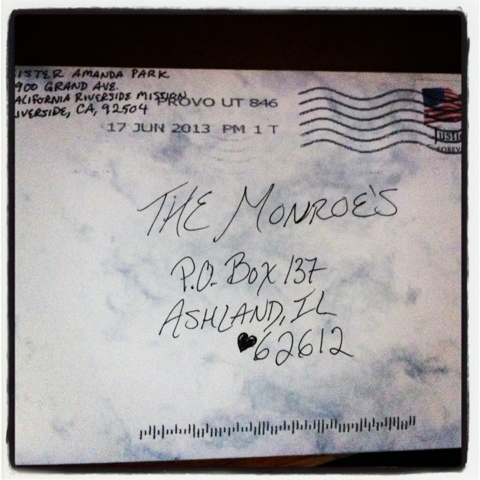 ISTER AMANDA PARK
900 GRAND AVE.
ALIFORNIA RIVERSIDE MISSION
IVERSIDE, CA, 92504
PROVO UT 846
17 JUN 2013 PM 1 T
USTI
FOREV
THE MONROE'S
P.O. BOX 137
ASHLAND, IL
62612